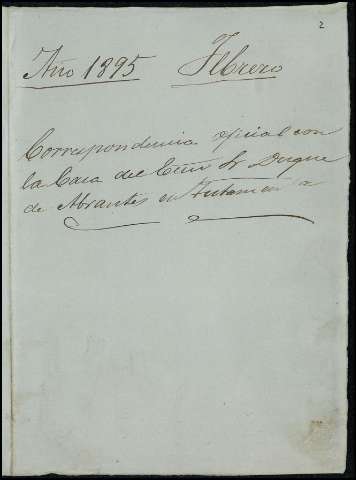 2
Año 1895 Febrero
Correspondencia oficial con
la Casa del Exmo Sr Duque
de Abrantes en